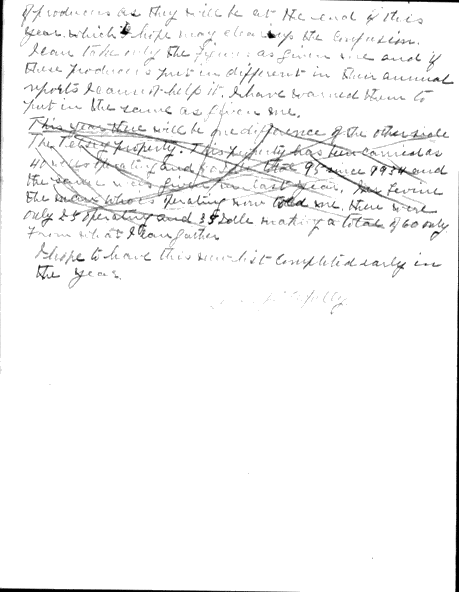 of producers as they will be at the end of this
year. which I hope may clear up the confusion.
I can take only the figures as given me and if
these producers put in different in their annual
reports I cannot help it. I have warned them to
put in the same as given me.
This year there will be one difference of the other side
The property. This property has been carried as
operating and 95 since 1934 and
the same was given me last year. Levine
the man who is operating now told me. there were
only 25 operating and 35 Idle making a total of 60 only
From what I can gather
I hope to have this new list completed early in
the year.